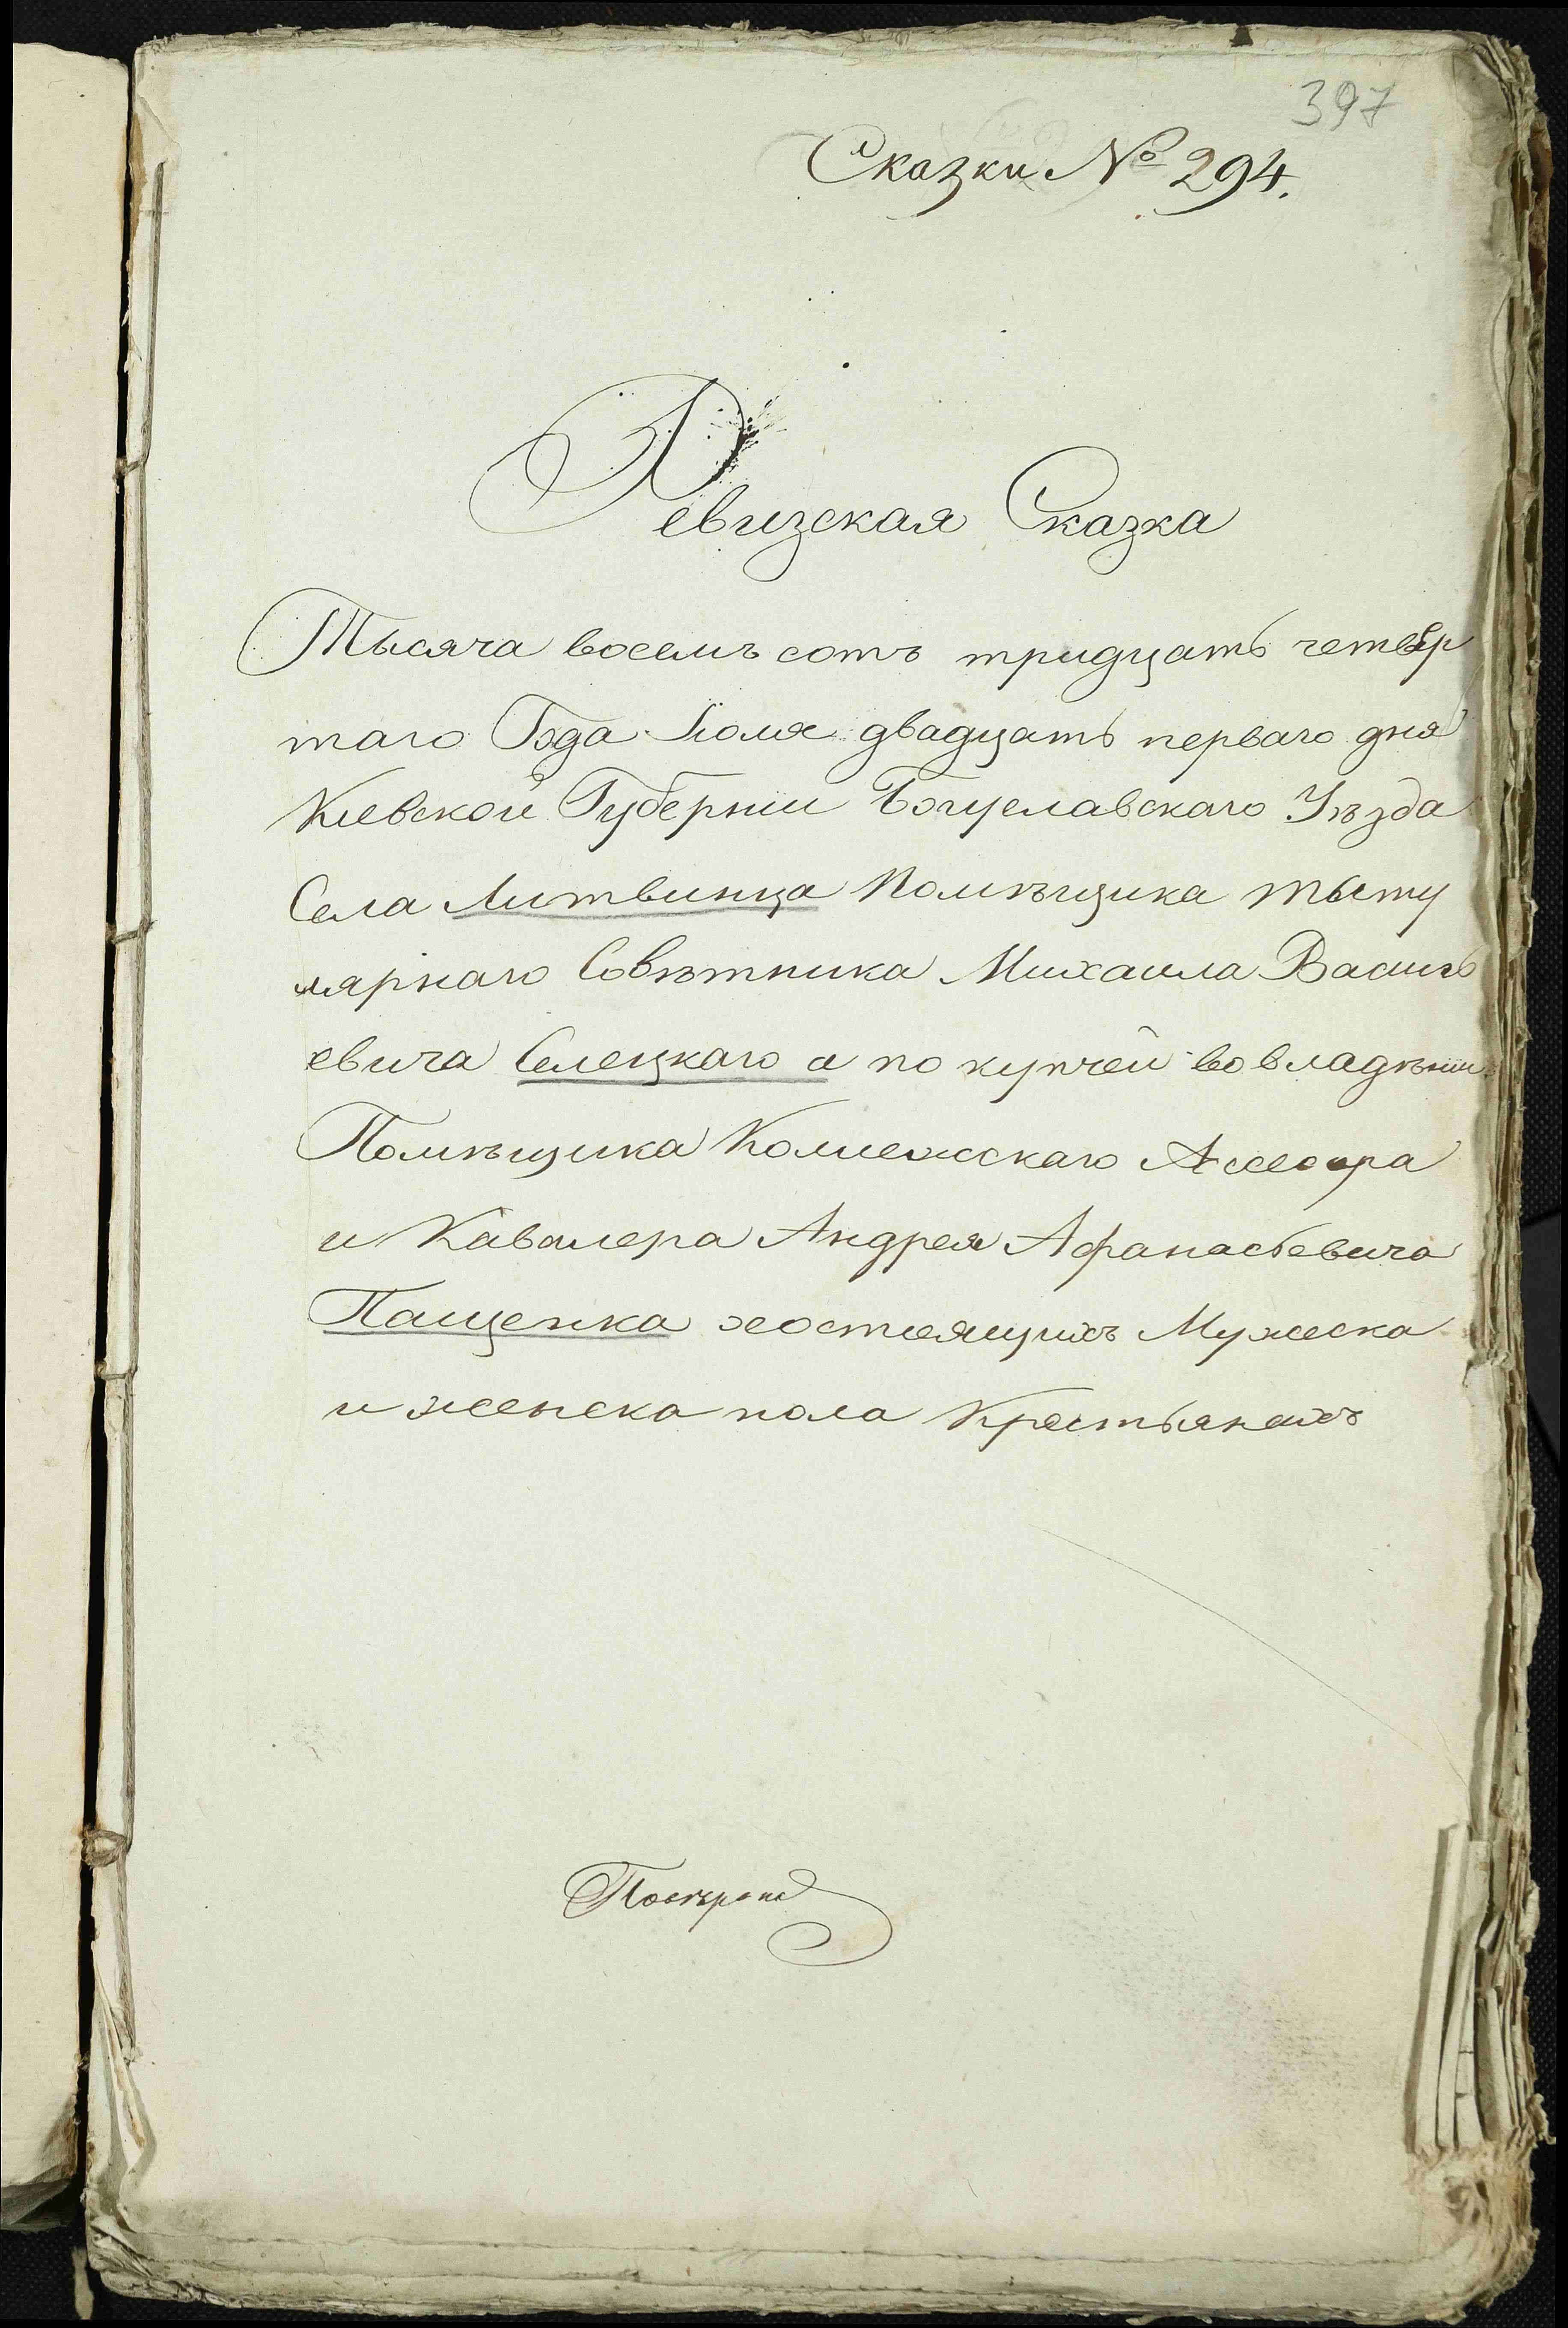 397
Сказки № 294.
Ревизская Сказка
Тысяча восемъ сотъ тридцать четвер
таго Года Iюля двадцать перваго дня
Кіевской Губерніи Богуславскаго Уѣзда
Села Литвинца Помѣщика тыту
лярнаго Совѣтника Михаила Василь
евича Селецкаго а по купчей во владѣніи
Помѣщика Коллежскаго Ассесора
и Кавалера Андрея Афанасьевича
Пащенка состоящихъ Мужеска
и женска пола Крестьянахъ